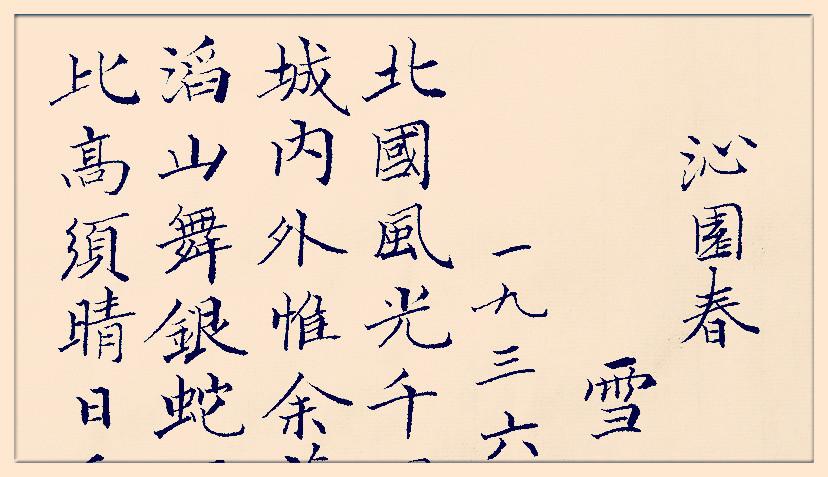 沁園春
雪
一九三六
北國風光千
城内外惟余
滔山舞銀蛇
比高須晴日